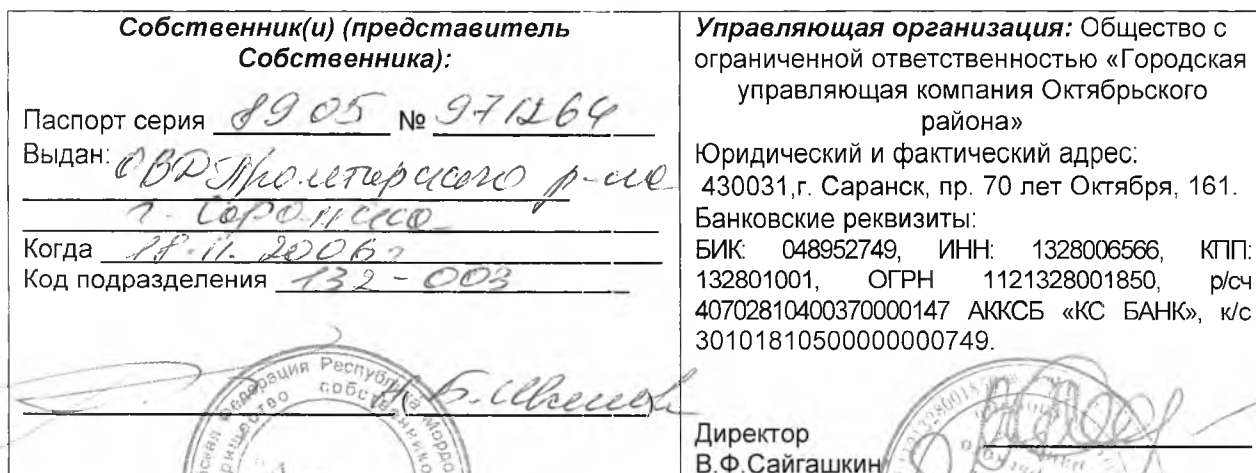 Собственник(и) (представитель
Собственника):
Паспорт серия 8905 № 971264
Выдан: ОВД Пролетарского р-на
г. Саранска
Когда 18.11.2006г
Код подразделения 132-003
Управляющая организация: Общество с
ограниченной ответственностью «Городская
управляющая компания Октябрьского
района»
Юридический и фактический адрес:
430031,г. Саранск, пр. 70 лет Октября, 161.
Банковские реквизиты:
БИК: 048952749, ИНН: 1328006566, КПП:
132801001, ОГРН 1121328001850, р/сч
40702810400370000147 АККСБ «КС БАНК», к/с
30101810500000000749.
Директор
В.Ф.Сайгашкин